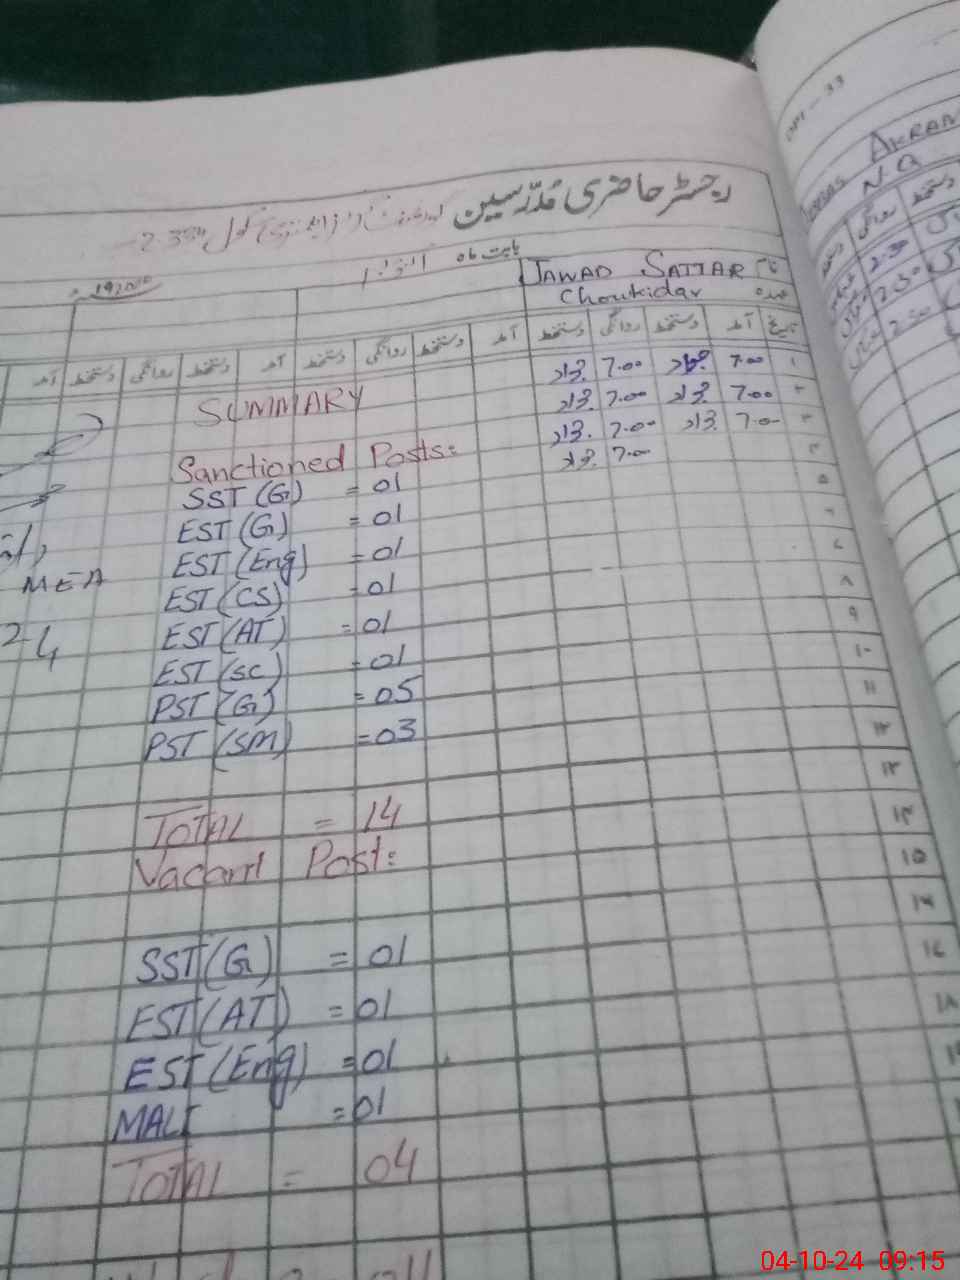 رجسٹر حاضری مدرسین
بابت ماہ
JAWAD SATTAR نام
Choukidar عہدہ
تاریخ آمد دستخط روانگی دستخط آمد دستخط روانگی دستخط آمد دستخط روانگی دستخط آمد
۱ 7.00 جواد 7.00 جواد
۲ 7.00 جواد 7.00 جواد
۳ 7.00 جواد 7.00 جواد
۴ 7.00 جواد
۵
۶
۷
۸
۹
۱۰
۱۱
۱۲
۱۳
۱۴
۱۵
۱۶
۱۷
۱۸
SUMMARY
Sanctioned Posts:
SST (G) = 01
EST (G) = 01
EST (Eng) = 01
EST (CS) = 01
EST (AT) = 01
EST (SC) = 01
PST (G) = 05
PST (SM) = 03
TOTAL = 14
Vacant Post:
SST (G) = 01
EST (AT) = 01
EST (Eng) = 01
MALI = 01
TOTAL = 04
MEA
AKRAM
N.Q
دستخط روانگی
2.30
2.30
04-10-24 09:15